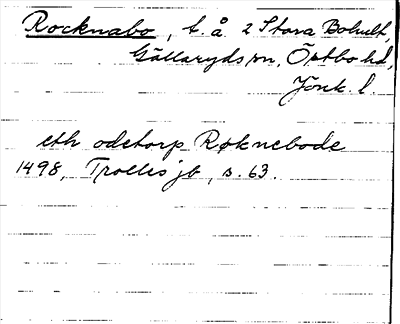 Rocknabo, t. å. 2 Stora Bohult,
Gällaryds sn, Östbo hd,
Jönk. l.
eth odetorp Røknebode
1498, Trolles jb, s. 63.